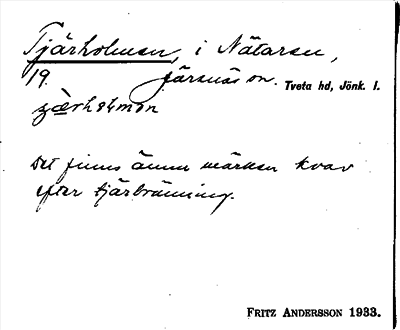 Tjärholmen, i Nätaren,
19. Järsnäs sn. Tveta hd, Jönk. l.
Det finns ännu märken kvar
efter tjärbränning.
FRITZ ANDERSSON 1933.